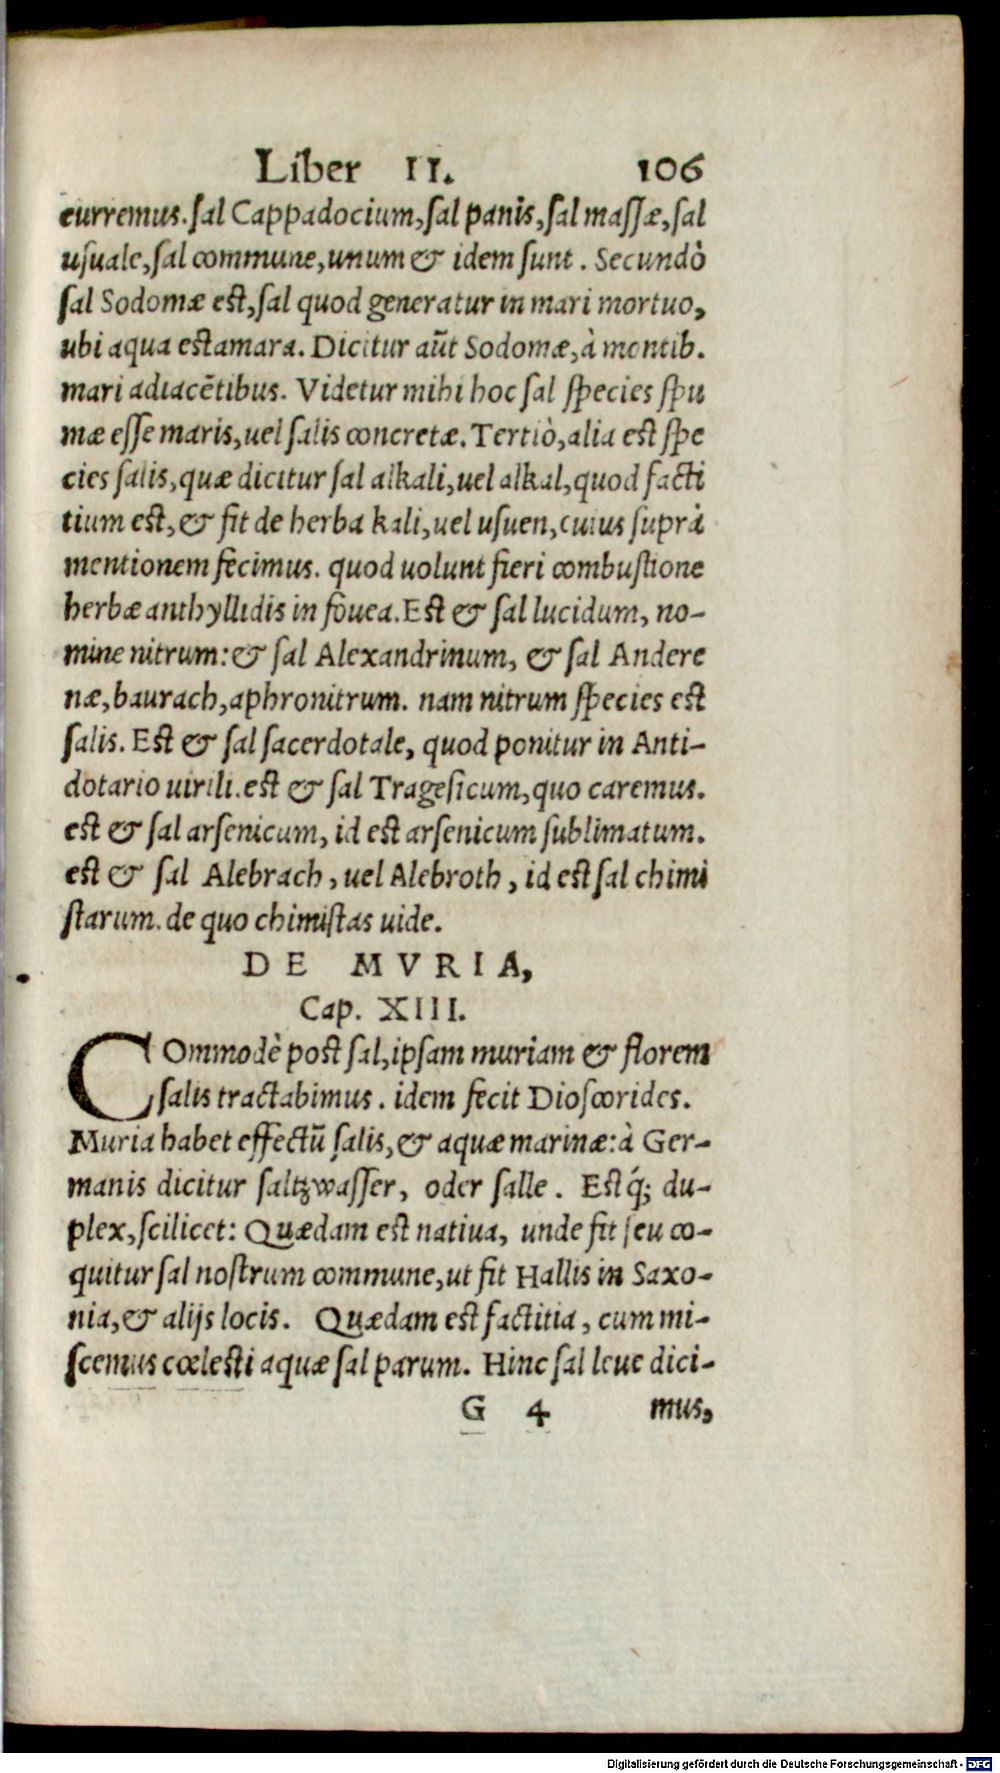 Liber II. 106
curremus. ſal Cappadocium, ſal panis, ſal maſſæ, ſal
uſuale, ſal commune, unum & idem ſunt. Secundò
ſal Sodomæ est, ſal quod generatur in mari mortuo,
ubi aqua est amara. Dicitur aūt Sodomæ, à montib.
mari adiacētibus. Videtur mihi hoc ſal ſpecies ſpu
mæ eſſe maris, uel ſalis concretæ. Tertiò, alia est ſpe
cies ſalis, quæ dicitur ſal alkali, uel alkal, quod facti
tium est, & fit de herba kali, uel uſuen, cuius ſuprà
mentionem fecimus. quod uolunt fieri combuſtione
herbæ anthyllidis in fouea. Est & ſal lucidum, no-
mine nitrum: & ſal Alexandrinum, & ſal Andere
næ, baurach, aphronitrum. nam nitrum ſpecies est
ſalis. Est & ſal ſacerdotale, quod ponitur in Anti-
dotario uirili. est & ſal Trageſicum, quo caremus.
est & ſal arſenicum, id est arſenicum ſublimatum.
est & ſal Alebrach, uel Alebroth, id est ſal chimi
ſtarum. de quo chimiſtas uide.
DE MVRIA,
Cap. XIII.
COmmodè post ſal, ipſam muriam & florem
ſalis tractabimus. idem fecit Dioſcorides.
Muria habet effectū ſalis, & aquæ marinæ: à Ger-
manis dicitur ſaltzwaſſer, oder ſalle. Estq́; du-
plex, ſcilicet: Quædam est natiua, unde fit ſeu co-
quitur ſal noſtrum commune, ut fit Hallis in Saxo-
nia, & alijs locis. Quædam est factitia, cum mi-
ſcemus cœlesti aquæ ſal parum. Hinc ſal leue dici-
G 4 mus,
Digitalisierung gefördert durch die Deutsche Forschungsgemeinschaft - DFG